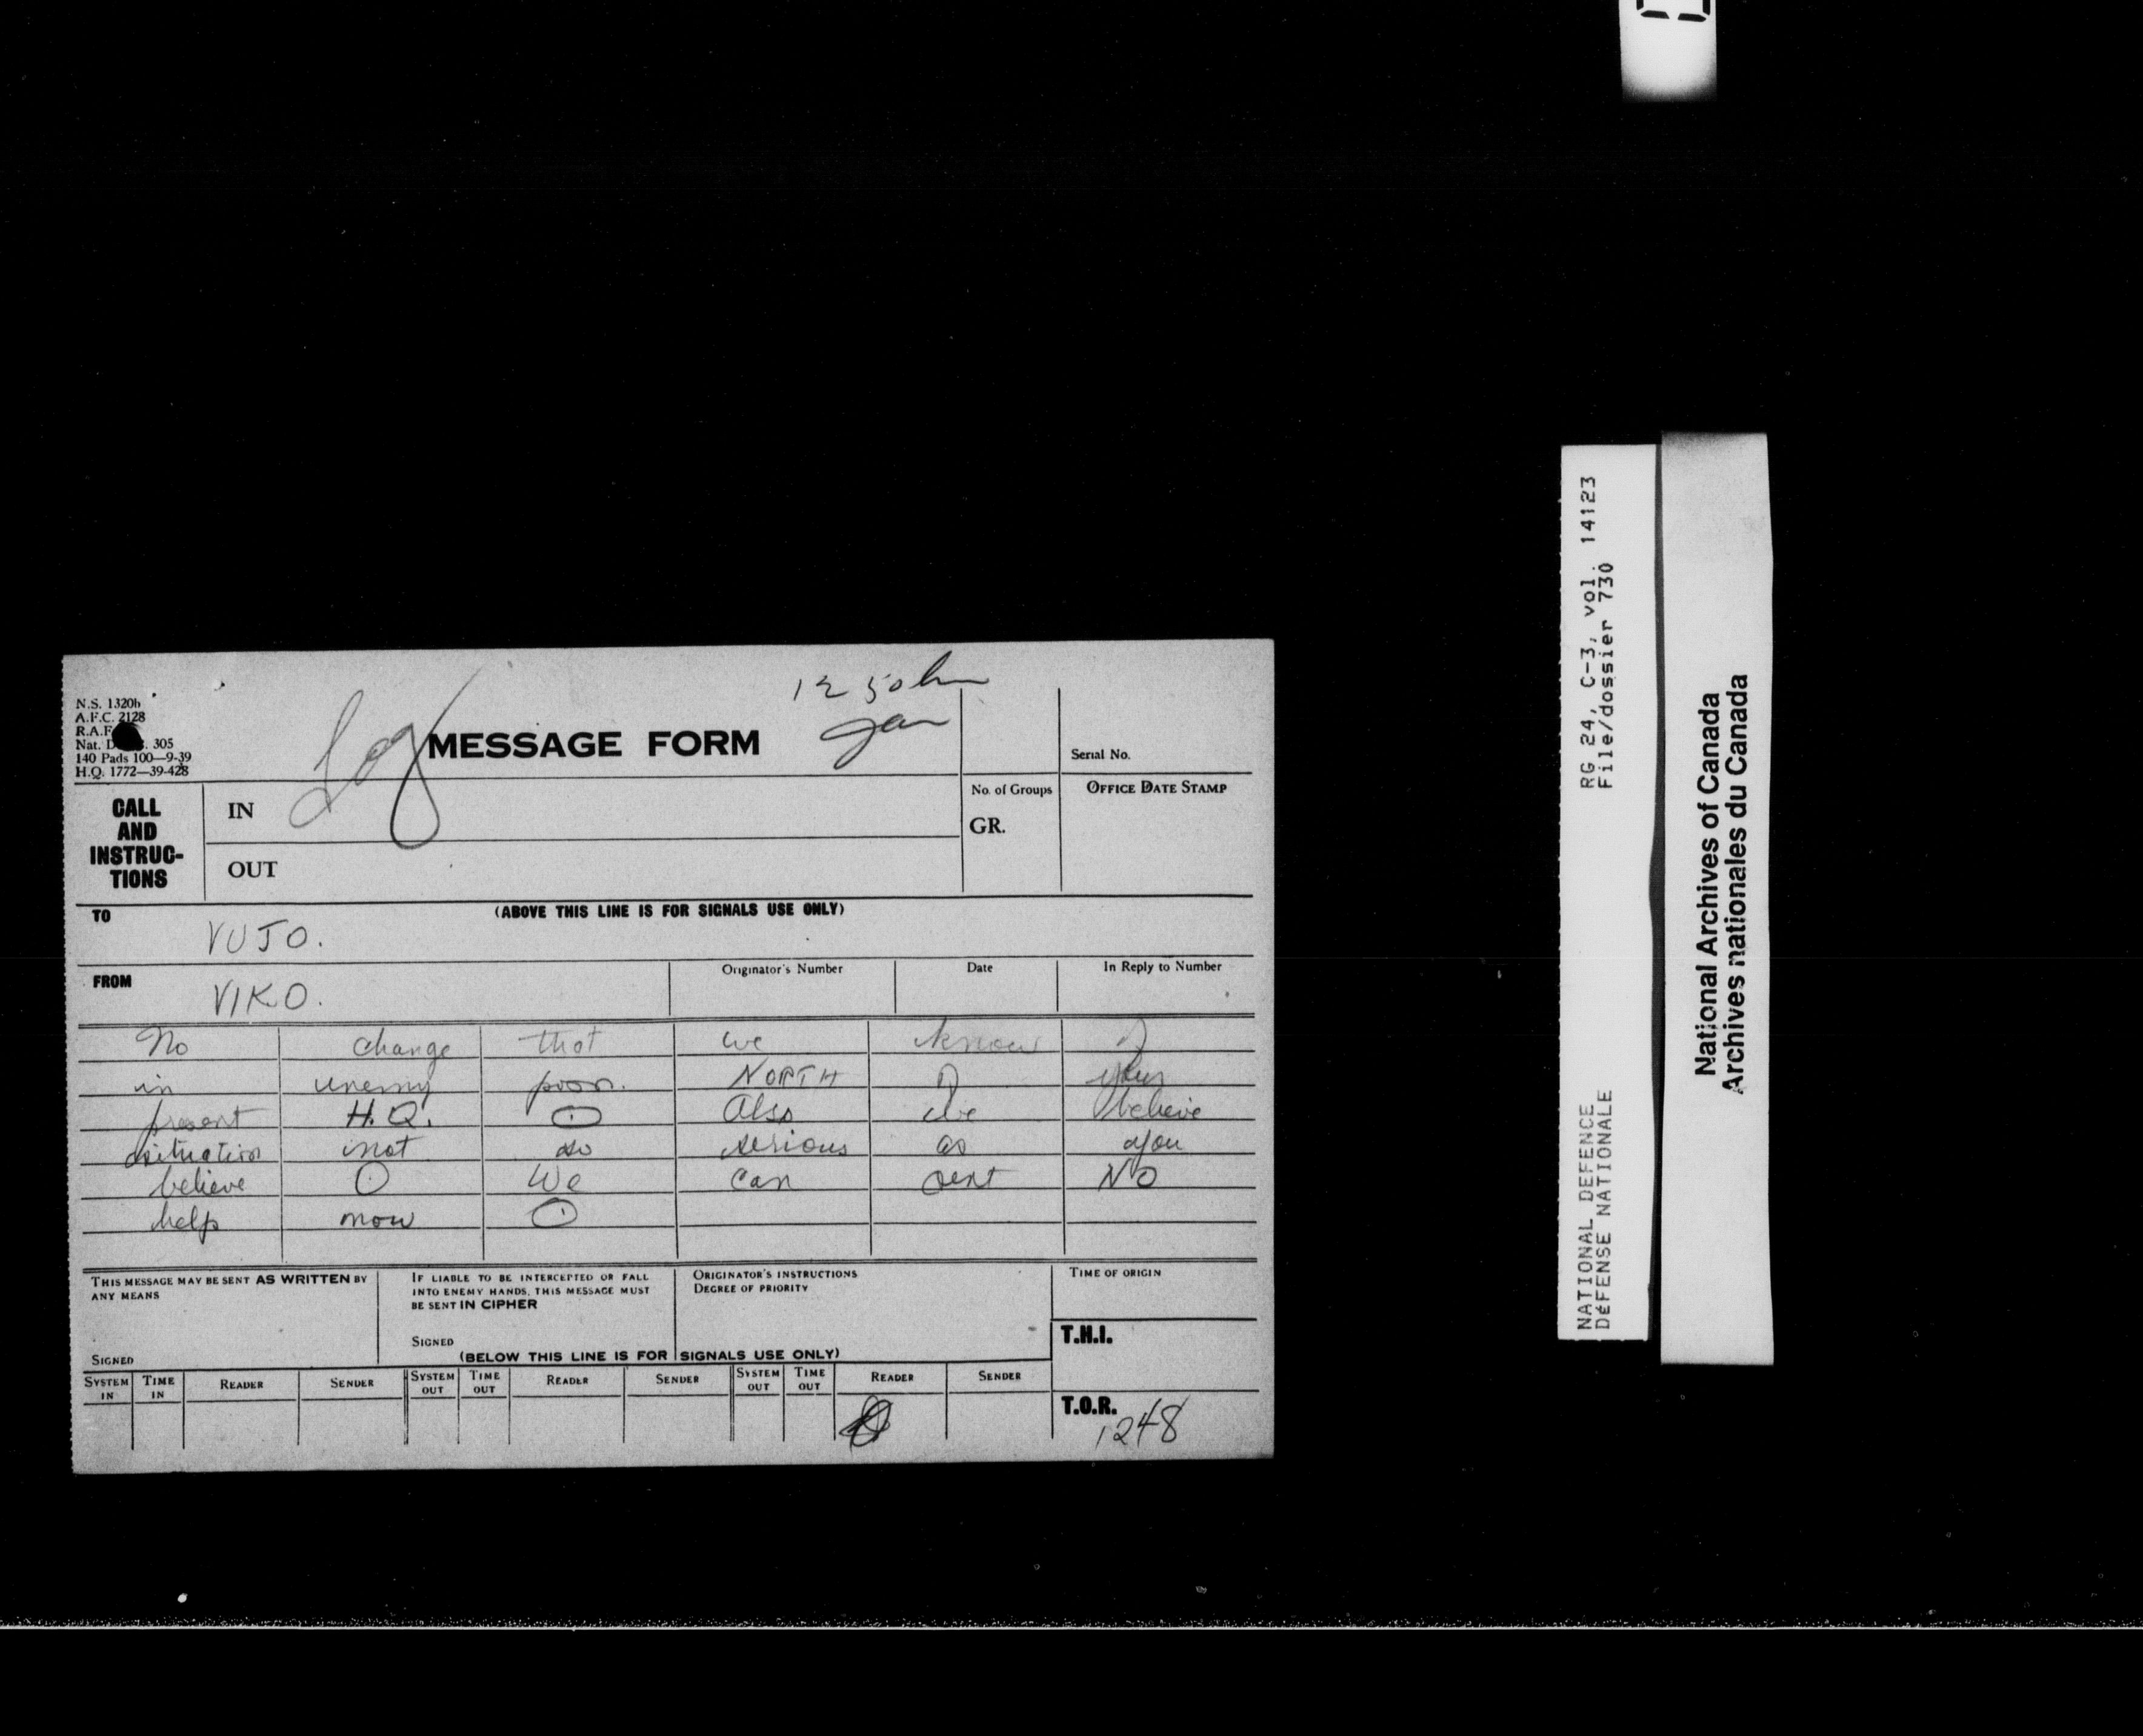 12 50 hr
Log
N.S. 1320b
A.F.C. 2128
R.A.F.
Nat. D 305
140 Pads 100—9-39
H.Q. 1772—39-428
MESSAGE FORM
Serial No.
CALL AND INSTRUC-TIONS
IN
OUT
No. of Groups
GR.
OFFICE DATE STAMP
TO
(ABOVE THIS LINE IS FOR SIGNALS USE ONLY)
VUJO.
FROM
VIKO.
Originator's Number
Date
In Reply to Number
No change that we know of
in enemy posn. NORTH of your
present H.Q. ⊙ Also we believe
situation not so serious as you
believe ⊙ We can NO
help now ⊙
THIS MESSAGE MAY BE SENT AS WRITTEN BY
ANY MEANS
SIGNED
IF LIABLE TO BE INTERCEPTED OR FALL
INTO ENEMY HANDS, THIS MESSAGE MUST
BE SENT IN CIPHER
SIGNED
ORIGINATOR'S INSTRUCTIONS
DEGREE OF PRIORITY
TIME OF ORIGIN
T.H.I.
(BELOW THIS LINE IS FOR SIGNALS USE ONLY)
SYSTEM IN TIME IN READER SENDER SYSTEM OUT TIME OUT READER SENDER SYSTEM OUT TIME OUT READER SENDER
T.O.R.
1248
RG 24, C-3, vol. 14123
File/dossier 730
NATIONAL DEFENCE
DéFENSE NATIONALE
National Archives of Canada
Archives nationales du Canada